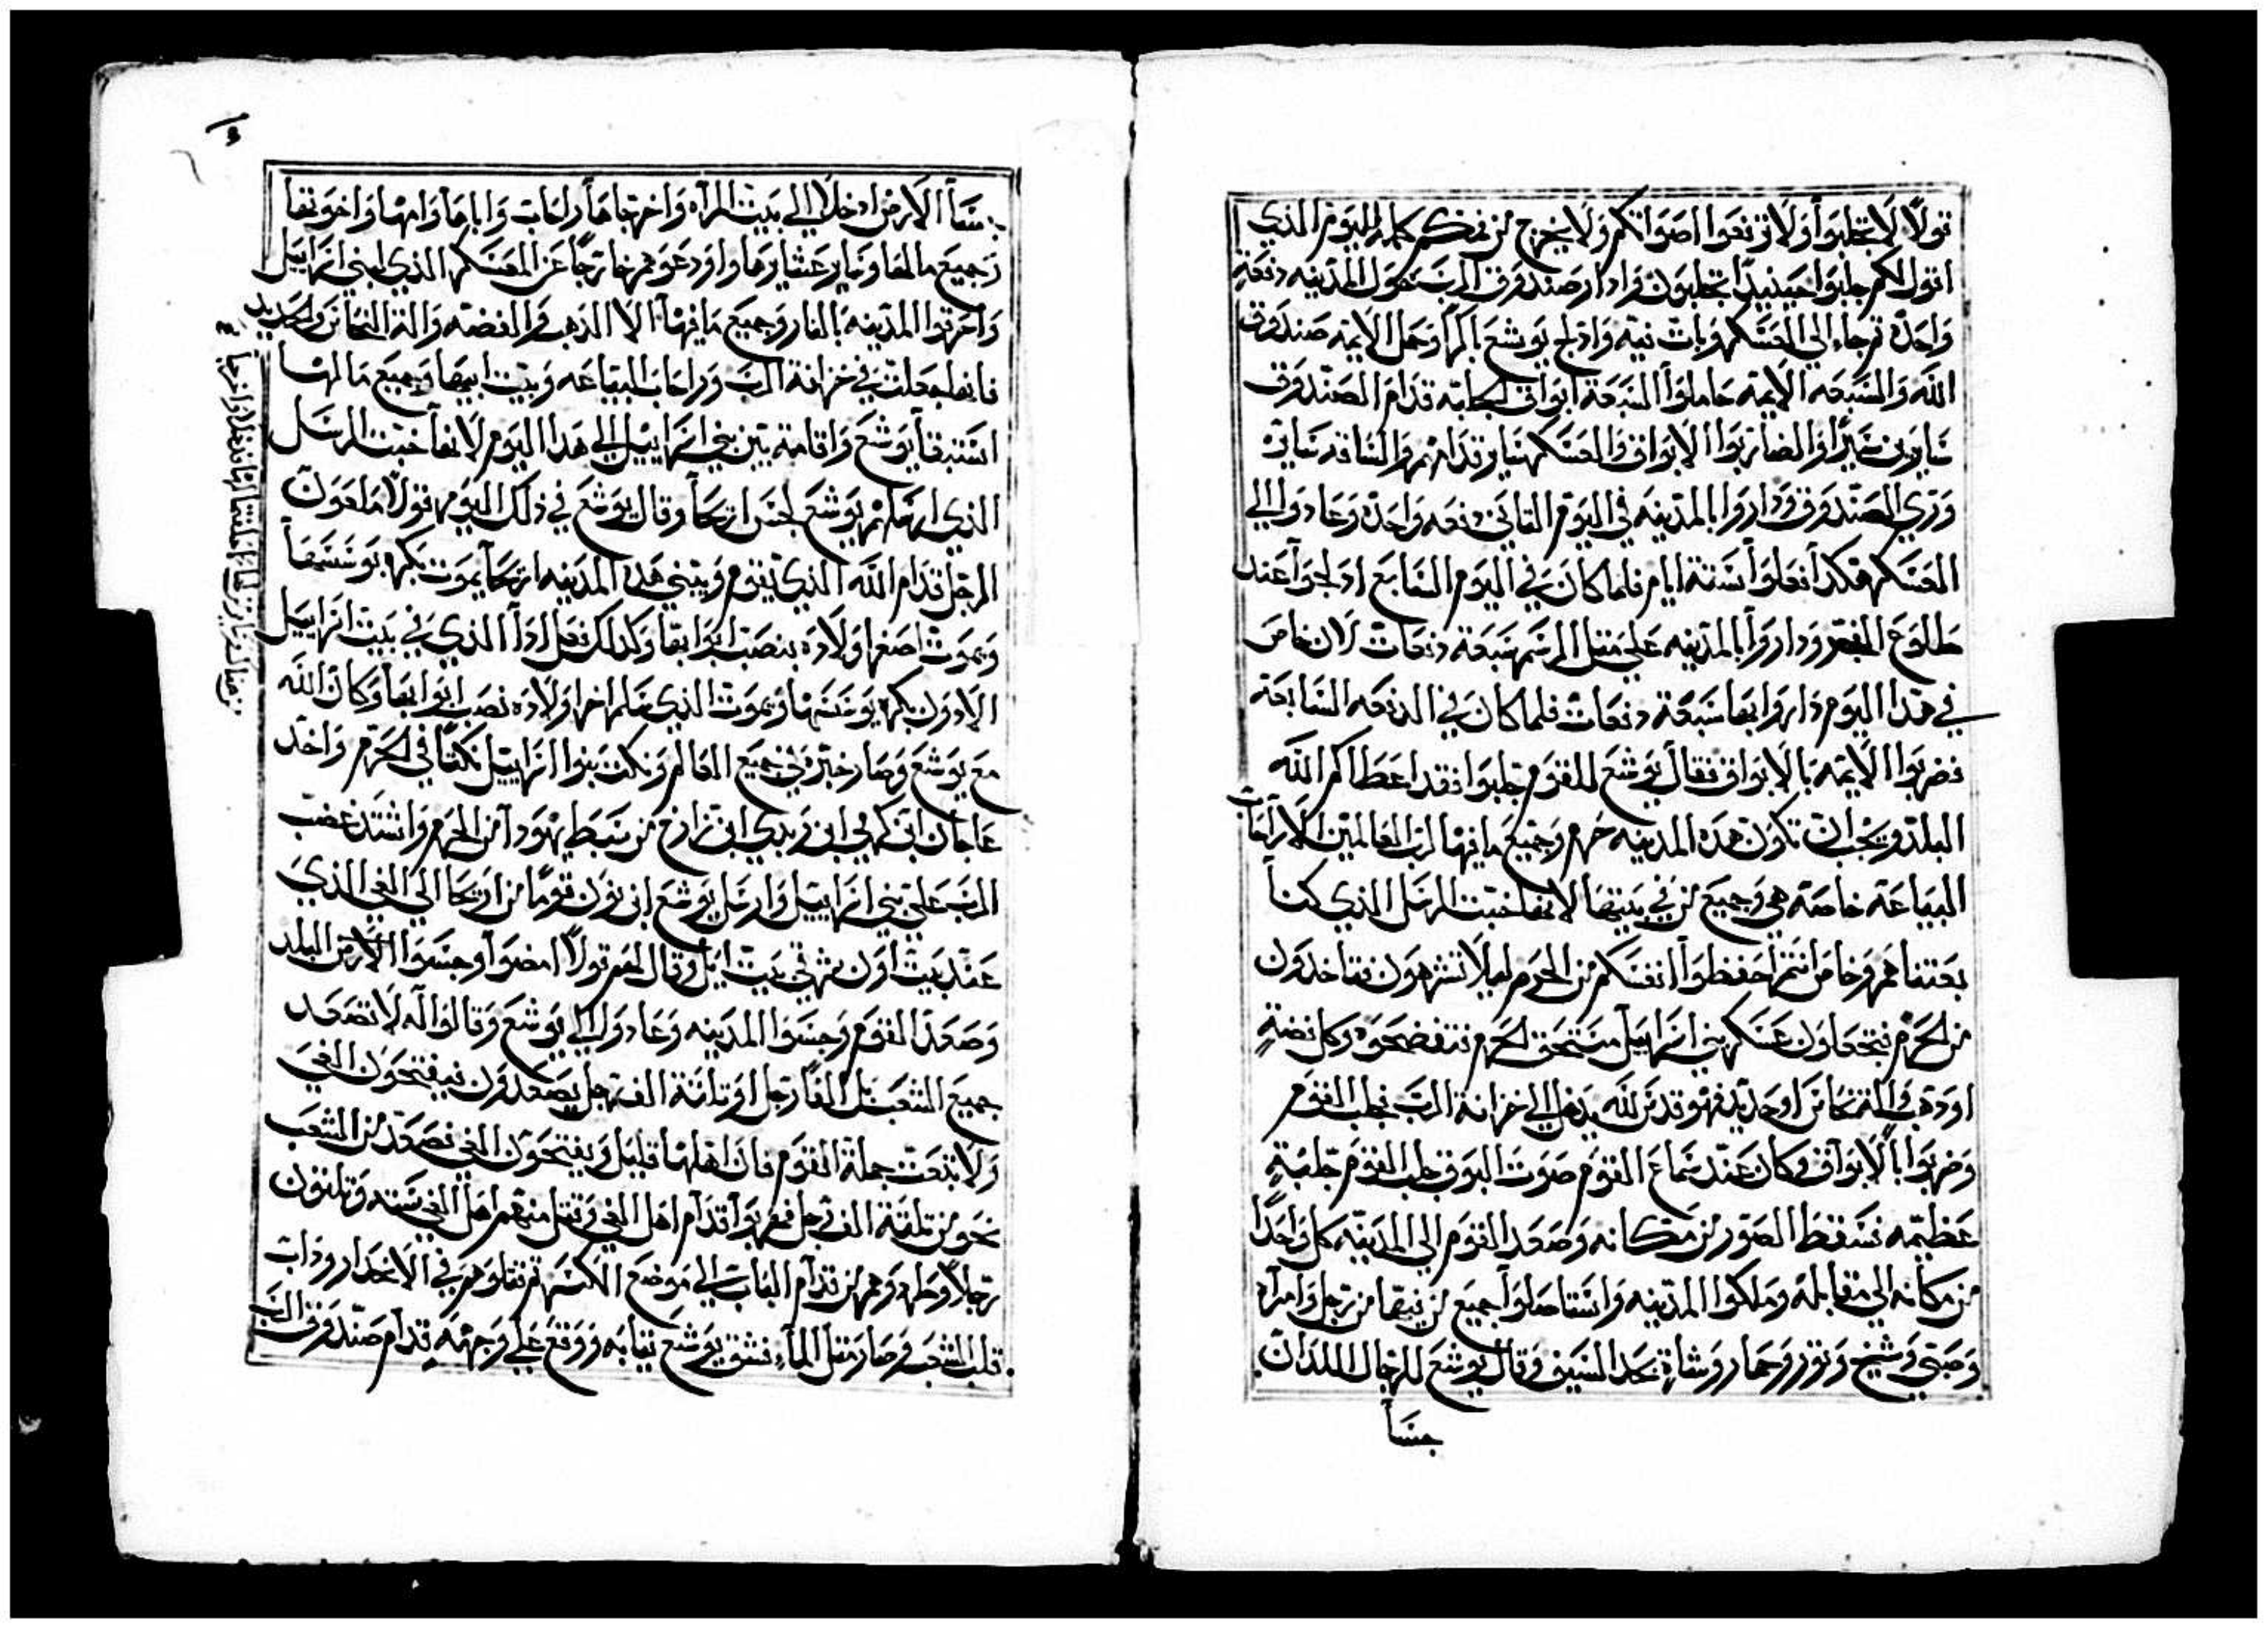 قولاً لا تجلبوا ولا ترفعوا اصواتكم ولا يخرج من فمكم كلام لليوم الذي
اقول لكم جلبوا حينيد تجلبون وادار صندوق الرب حول المدينه دفعة
واحدة ثم جاء الي العسكر وبات فيه وادلج يوشع باكرا وحمل الايمه صندوق
الله والسبعه الايمه حاملوا السبعة ابواق الجلبه قدام الصندوق
سايرون سيرا والضاربوا الابواق والعسكر ساير قدامهم والساقه ساير
وري الصندوق وداروا بالمدينه في اليوم الثاني دفعه واحدة وعادوا الي
العسكر هكدا فعلوا ستة ايام فلما كان في اليوم السابع ادلجوا عند
طلوع الفجر وداروا بالمدينه علي مثل الرسم سبعة دفعات لان خاص
في هدا اليوم داروا بها سبعة دفعات فلما كان في الدفعه السابعة
فضربوا الايمه بالابواق فقال يوشع للقوم جلبوا فقد اعطاكم الله
البلد ويجب ان تكون هده المدينه حرم وجميع ما فيها لرب العالمين الا راحاب
البياعة خاصة هي وجميع من في بيتها لانها خبت الرسل الذي كنا
بعتناهم وخاص انتم احفظوا انفسكم من الحرم ليلا تشرهون فتاخدون
من الحرم فتجعلون عسكر بني اسراييل مستحق الحرم فتفضحوه وكل فضة
او دهب والة نحاس او حديد فهو قدس لله يدخل الي خزانة الرب فجلب القوم
وضربوا بالابواق وكان عند سماع القوم صوت البوق جلب القوم جلبة
عظيمه فسقط الصور من مكانه وصعد القوم الي المدينه كل واحدا
من مكانه الي مقابله وملكوا المدينه واستاصلوا جميع من فيها من رجل وامراه
وصبي وشيخ وثور وحمار وشاة بحد السيف وقال يوشع للرجال اللدان
جسا
جسا الارض ادخلا الي بيت المراه واخرجاها راحاب واباها وامها واخوتها
وجميع مالها وساير عشايرها واودعوهم خارجا عن العسكر الذي لبني اسراييل
واحرقوا المدينه بالنار وجميع ما فيها الا الذهب والفضه والة النحاس والحديد
فانها جعلت في خزانة الرب وراحاب البياعه وبيت ابيها وجميع مالها
استبقا يوشع واقامة بين بني اسراييل الي هدا اليوم لانها خبت الرسل
الذي ارسلهم يوشع لجس اريحا وقال يوشع في ذلك اليوم قولا ملعون
الرجل قدام الله الذي يقوم ويبني هده المدينه اريحا بموت بكره يوسسها
وبموت اصغر اولاده ينصب ابوابها وكدلك فعل ادا الذي في بيت اسراييل
الادون بكره يوسسها وبموت الذي سلم اخر اولاده نصب ابوابها وكان الله
مع يوشع وصار خبره في جميع العالم ونكث بنوا اسراييل نكثا في الحرم واخد
عاجان ابن كهمي ابن زبدي ابن زارح من سبط يهودا من الحرم واشتد غضب
الرب علي بني اسراييل وارسل يوشع ابن نون قوما من اريحا الي الغي الذي
عند بيت اون شرقي بيت ايل وقال لهم قولا امضوا وجسوا الارض البلد
وصعد القوم وجسوا المدينه وعادوا الي يوشع وقالوا له لا تصعد
جميع الشعب بل الفا رجل او ثلاثة الف رجل يصعدون فيفتحون الغي
ولا تتعب جملة القوم فان اهلها قليل ويفتحون الغي فصعد من الشعب
نحو من ثلثة الف رجل فهربوا قدام اهل الغي وقتل منهم اهل الغي سته وثلثون
رجلا وطردوهم من قدام الباب الي موضع الكسر ثم قتلوهم في الانحدار وداب
قلب الشعب وصار مثل الماء فشق يوشع ثيابه ووقع علي وجهه قدام صندوق الرب